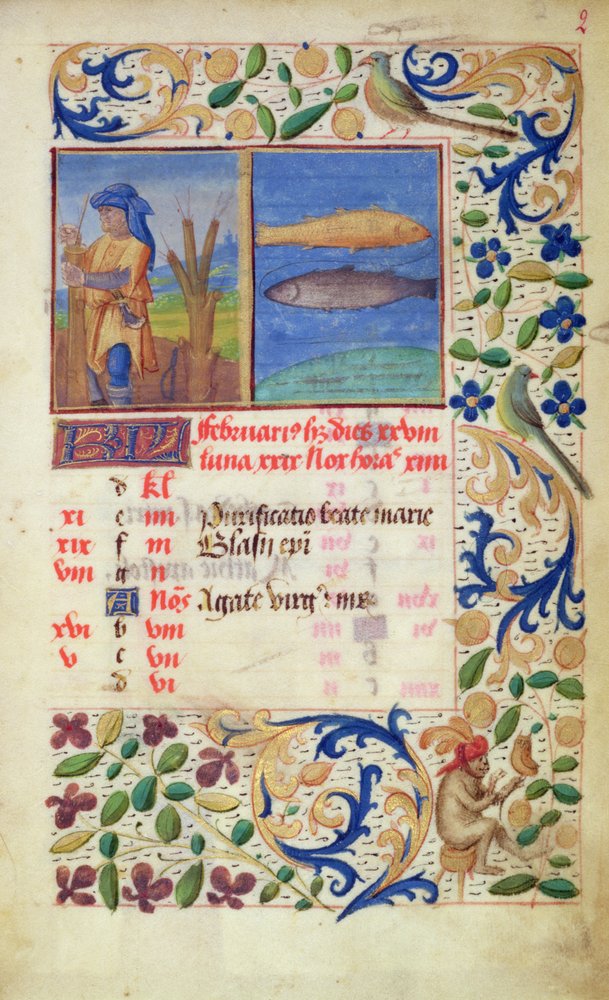 2
KL Februari9 hz dies xxviii
luna xxix Nox hora2 xiiii
d kl
xi e iiii Purificatio beate marie
xix f iii Blasii epi
viii g ii
A Nos Agate virg2 et mr
xvi b viii
v c vii
d vi